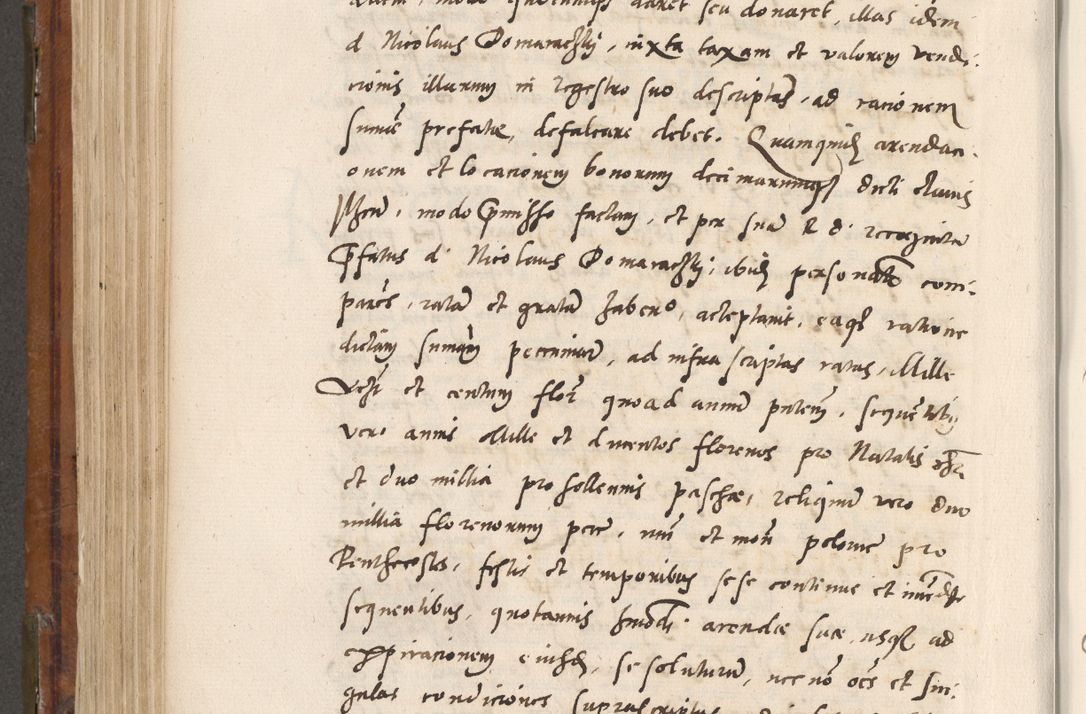 daret seu donaret, illas idem
d Nicolaus Domaraczky, iuxta taxam et valorem vendi-
cionis illarum in regestro suo descriptas, ad racionem
sume prefate, defalcare debet. Quamquid arendaci-
onem et locacionem bonorum decimarumq dicti clavis
modo pmisso factam, et per sua R d. recognita
pfatus d. Nicolaus Domaraczky, ibid personalr com-
pares, ratam et gratam habens, acceptavit, eaq ratione
dictam sumam pecuniar, ad infra scriptas ratas, Mille
et centum flor quoad annum pntem, sequentib
vero annis Mille et ducentos florenos pro Natalis chri
et duo millia pro sollennis paschae, reliquum vero duo
millia florenorum pecc, nui et mon polonie pro
Penthecostes, festis et temporibus sese continue et immediate
sequentibus, quotannis hmodi arendae suae, usq ad
expiracionem eiusd, se soluturum, nec no oes et sin-
gulas condiciones suprascriptas